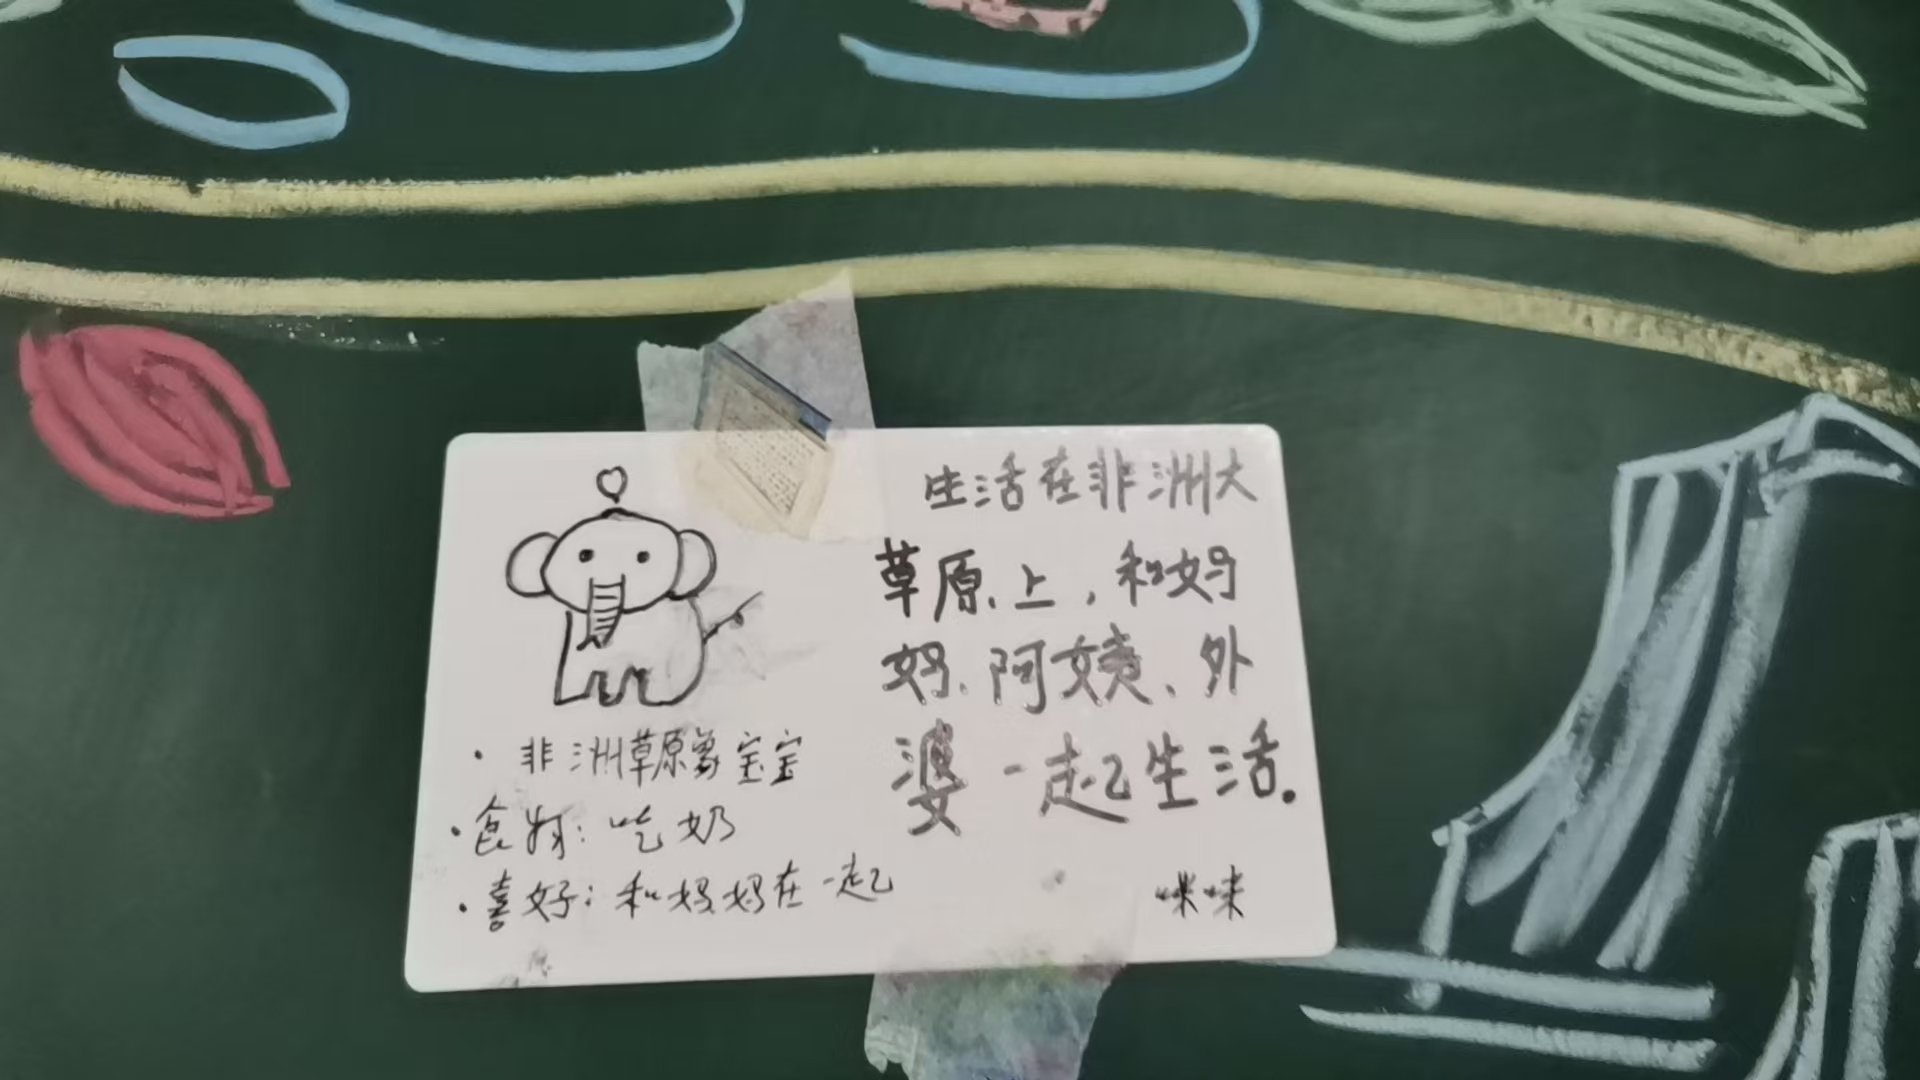 · 非洲草原象宝宝
· 食物：吃奶
· 喜好：和妈妈在一起
生活在非洲大
草原上，和妈
妈、阿姨、外
婆一起生活.
咪咪